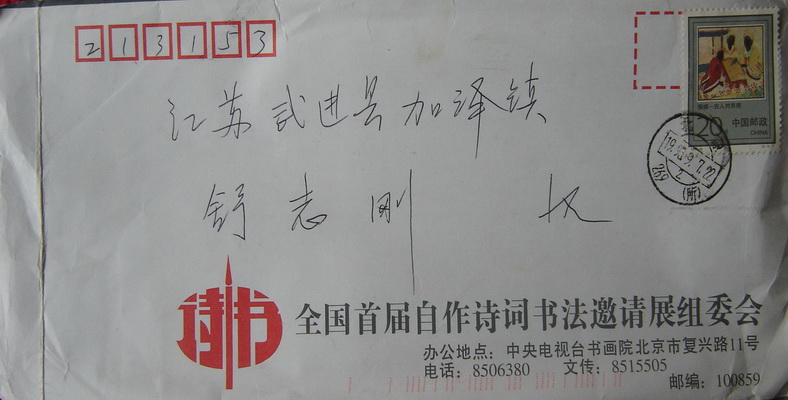 213153
江苏武进县加泽镇
舒志刚 收
20 中国邮政
CHINA
诗书
全国首届自作诗词书法邀请展组委会
办公地点：中央电视台书画院北京市复兴路11号
电话：8506380 文传：8515505
邮编：100859